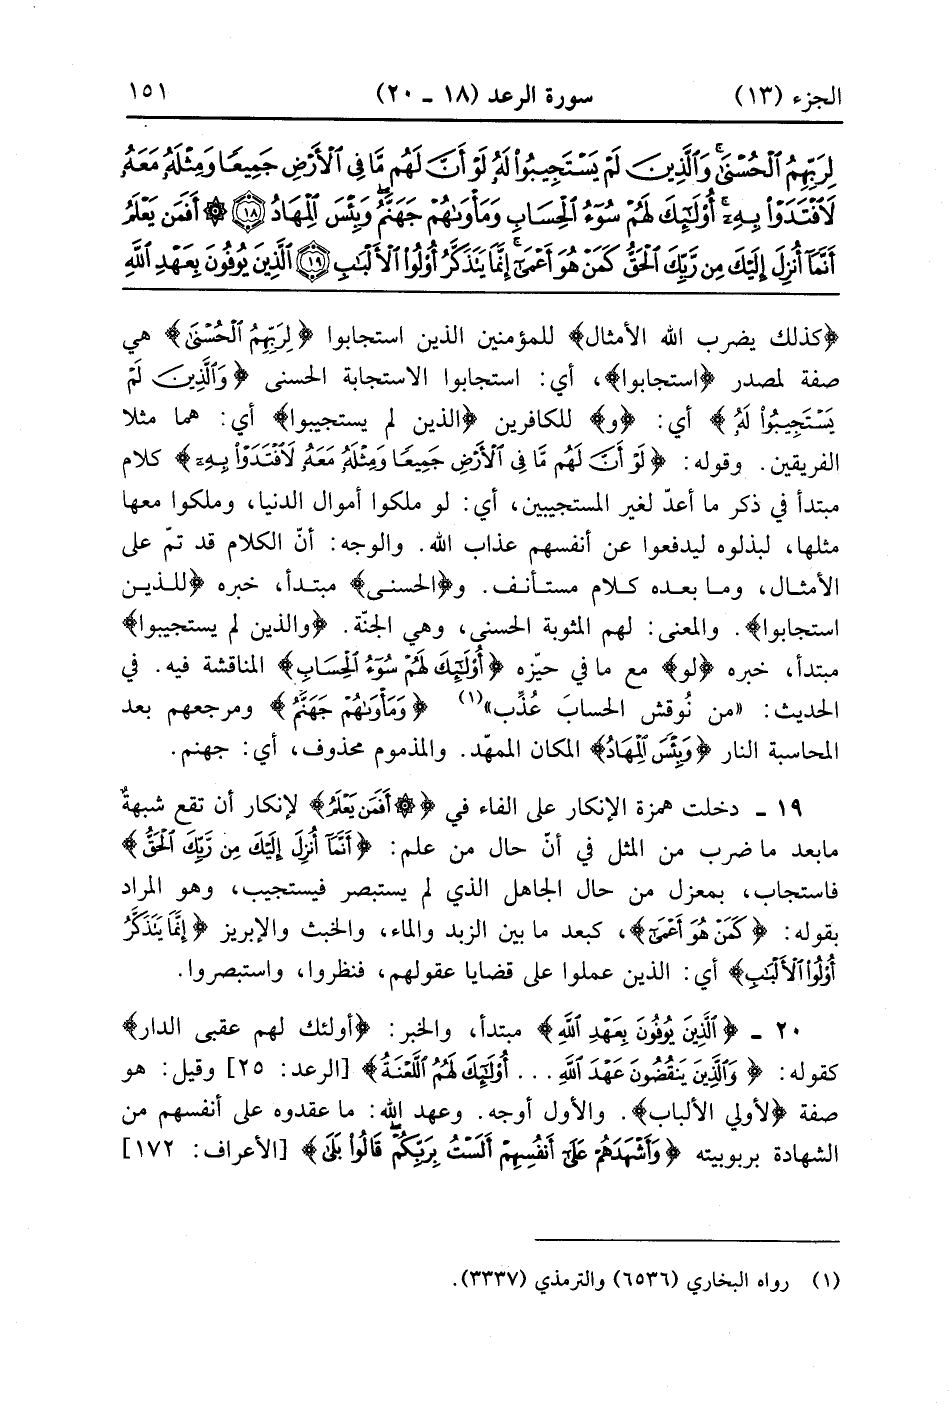 الجزء (١٣) سورة الرعد (١٨ ـ ٢٠) ١٥١
لِرَبِّهِمُ ٱلۡحُسۡنَىٰۚ وَٱلَّذِينَ لَمۡ يَسۡتَجِيبُواْ لَهُۥ لَوۡ أَنَّ لَهُم مَّا فِي ٱلۡأَرۡضِ جَمِيعًا وَمِثۡلَهُۥ مَعَهُۥ
لَٱفۡتَدَوۡاْ بِهِۦٓۚ أُوْلَٰٓئِكَ لَهُمۡ سُوٓءُ ٱلۡحِسَابِ وَمَأۡوَىٰهُمۡ جَهَنَّمُۖ وَبِئۡسَ ٱلۡمِهَادُ ١٨ ۞ أَفَمَن يَعۡلَمُ
أَنَّمَآ أُنزِلَ إِلَيۡكَ مِن رَّبِّكَ ٱلۡحَقُّ كَمَنۡ هُوَ أَعۡمَىٰٓۚ إِنَّمَا يَتَذَكَّرُ أُوْلُواْ ٱلۡأَلۡبَٰبِ ١٩ ٱلَّذِينَ يُوفُونَ بِعَهۡدِ ٱللَّهِ
﴿كذلك يضرب الله الأمثال﴾ للمؤمنين الذين استجابوا ﴿لِرَبِّهِمُ ٱلۡحُسۡنَىٰ﴾ هي
صفة لمصدر ﴿استجابوا﴾، أي: استجابوا الاستجابة الحسنى ﴿وَٱلَّذِينَ لَمۡ
يَسۡتَجِيبُواْ لَهُۥ﴾ أي: ﴿و﴾ للكافرين ﴿الذين لم يستجيبوا﴾ أي: هما مثلا
الفريقين. وقوله: ﴿لَوۡ أَنَّ لَهُم مَّا فِي ٱلۡأَرۡضِ جَمِيعًا وَمِثۡلَهُۥ مَعَهُۥ لَٱفۡتَدَوۡاْ بِهِۦٓ﴾ كلام
مبتدأ في ذكر ما أعدّ لغير المستجيبين، أي: لو ملكوا أموال الدنيا، وملكوا معها
مثلها، لبذلوه ليدفعوا عن أنفسهم عذاب الله. والوجه: أنّ الكلام قد تمّ على
الأمثال، وما بعده كلام مستأنف. و﴿الحسنى﴾ مبتدأ، خبره ﴿للذين
استجابوا﴾. والمعنى: لهم المثوبة الحسنى، وهي الجنّة. ﴿والذين لم يستجيبوا﴾
مبتدأ، خبره ﴿لو﴾ مع ما في حيّزه ﴿أُوْلَٰٓئِكَ لَهُمۡ سُوٓءُ ٱلۡحِسَابِ﴾ المناقشة فيه. في
الحديث: «من نُوقش الحسابَ عُذِّب»(١) ﴿وَمَأۡوَىٰهُمۡ جَهَنَّمُ﴾ ومرجعهم بعد
المحاسبة النار ﴿وَبِئۡسَ ٱلۡمِهَادُ﴾ المكان الممهّد. والمذموم محذوف، أي: جهنم.
١٩ ـ دخلت همزة الإنكار على الفاء في ﴿۞ أَفَمَن يَعۡلَمُ﴾ لإنكار أن تقع شبهةٌ
مابعد ما ضرب من المثل في أنّ حال من علم: ﴿أَنَّمَآ أُنزِلَ إِلَيۡكَ مِن رَّبِّكَ ٱلۡحَقُّ﴾
فاستجاب، بمعزل من حال الجاهل الذي لم يستبصر فيستجيب، وهو المراد
بقوله: ﴿كَمَنۡ هُوَ أَعۡمَىٰٓ﴾، كبعد ما بين الزبد والماء، والخبث والإبريز ﴿إِنَّمَا يَتَذَكَّرُ
أُوْلُواْ ٱلۡأَلۡبَٰبِ﴾ أي: الذين عملوا على قضايا عقولهم، فنظروا، واستبصروا.
٢٠ ـ ﴿ٱلَّذِينَ يُوفُونَ بِعَهۡدِ ٱللَّهِ﴾ مبتدأ، والخبر: ﴿أولئك لهم عقبى الدار﴾
كقوله: ﴿وَٱلَّذِينَ يَنقُضُونَ عَهۡدَ ٱللَّهِ . . . أُوْلَٰٓئِكَ لَهُمُ ٱللَّعۡنَةُ﴾ [الرعد: ٢٥] وقيل: هو
صفة ﴿لأولي الألباب﴾. والأول أوجه. وعهد الله: ما عقدوه على أنفسهم من
الشهادة بربوبيته ﴿وَأَشۡهَدَهُمۡ عَلَىٰٓ أَنفُسِهِمۡ أَلَسۡتُ بِرَبِّكُمۡۖ قَالُواْ بَلَىٰ﴾ [الأعراف: ١٧٢]
(١) رواه البخاري (٦٥٣٦) والترمذي (٣٣٣٧).